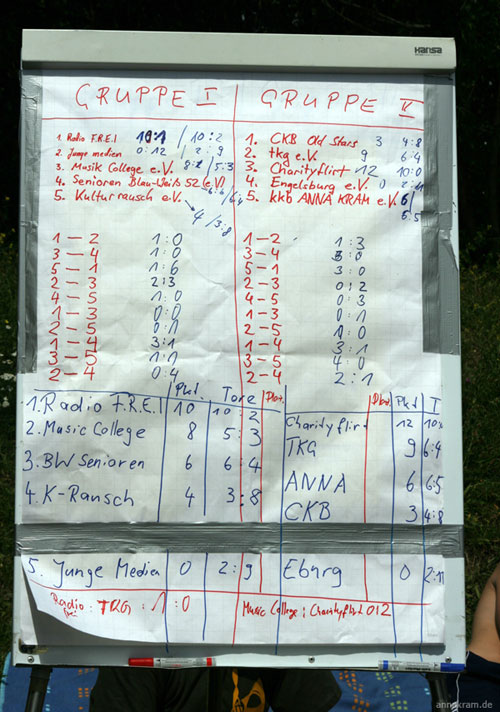 Hansa
GRUPPE I
1. Radio F.R.E.I 10:1 / 10:2
2. Junge medien 0:12 2:9
3. Musik College e.V. 8:2 / 5:3
4. Senioren Blau-Weiß 52 (e.V) 6:6 / 6:4
5. Kulturrausch e.V. 4 / 3:8
1 — 2 1:0
3 — 4 1:0
5 — 1 1:6
2 — 3 2:3
4 — 5 1:0
1 — 3 0:0
2 — 5 0:1
1 — 4 3:1
3 — 5 1:1
2 — 4 0:4
GRUPPE II
1. CKB Old Stars 3 4:8
2. tkg e.V. 9 6:4
3. Charityflirt 12 10:0
4. Engelsburg e.V. 0 2:11
5. kkb ANNA KRAM e.V. 6/
6:5
1 — 2 1:3
3 — 4 3:0
5 — 1 3:0
2 — 3 0:2
4 — 5 0:3
1 — 3 0:1
2 — 5 1:0
1 — 4 3:1
3 — 5 4:0
2 — 4 2:1
Pkt. Tore
1. Radio F.R.E.I 10 10:2
2. Music College 8 5:3
3. BW Senioren 6 6:4
4. K-Rausch 4 3:8
5. Junge Medien 0 2:9
Pkt T
Charityflirt 12 10:
TKG 9 6:4
ANNA 6 6:5
CKB 3 4:8
Ebnrg 0 2:11
Radio : TKG : 1:0
Music College : Charityflirt 0:2
annakram.de